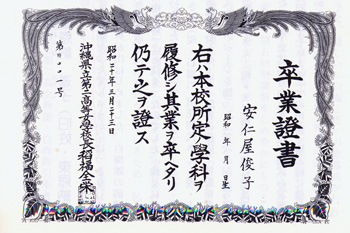 卒業證書
安仁屋俊子
昭和 年 月 日生
右ハ本校所定ノ學科ヲ
履修シ其業ヲ卒ヘタリ
仍テ之ヲ證ス
昭和二十年三月二十三日
沖縄県立第二高等女學校長稻福全榮
号